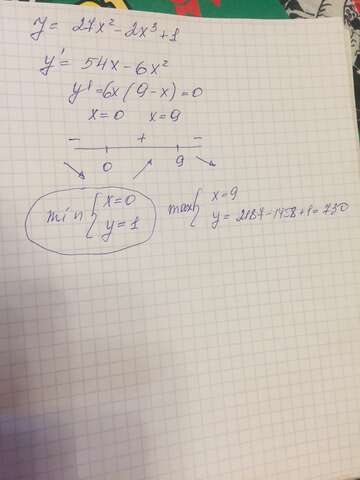 y = 27x² - 2x³ + 1
y' = 54x - 6x²
y' = 6x (9 - x) = 0
x = 0 x = 9
- + -
0 9
min { x = 0 y = 1 max { x = 9 y = 2187 - 1458 + 1 = 730